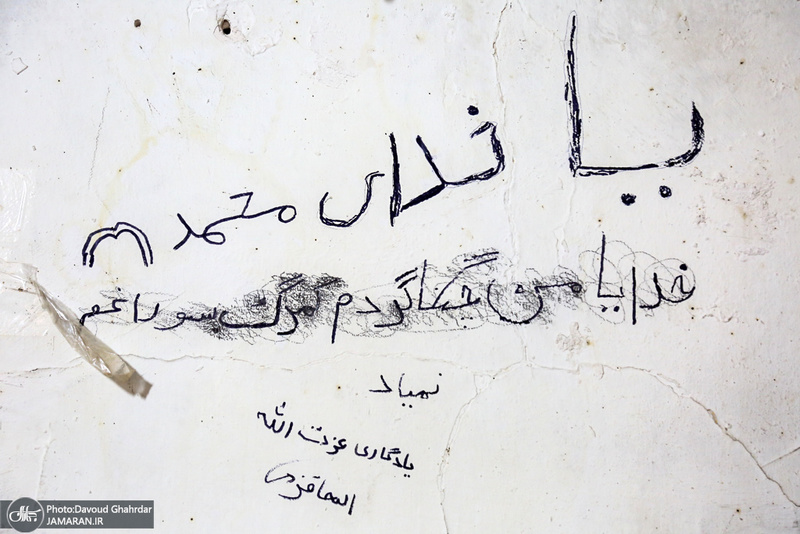 یا خدای محمد
خدایا من چکار کردم گمرگ بسوراغم
نمیاد
یادگاری عزت الله
Photo:Davoud Ghahrdar
JAMARAN.IR